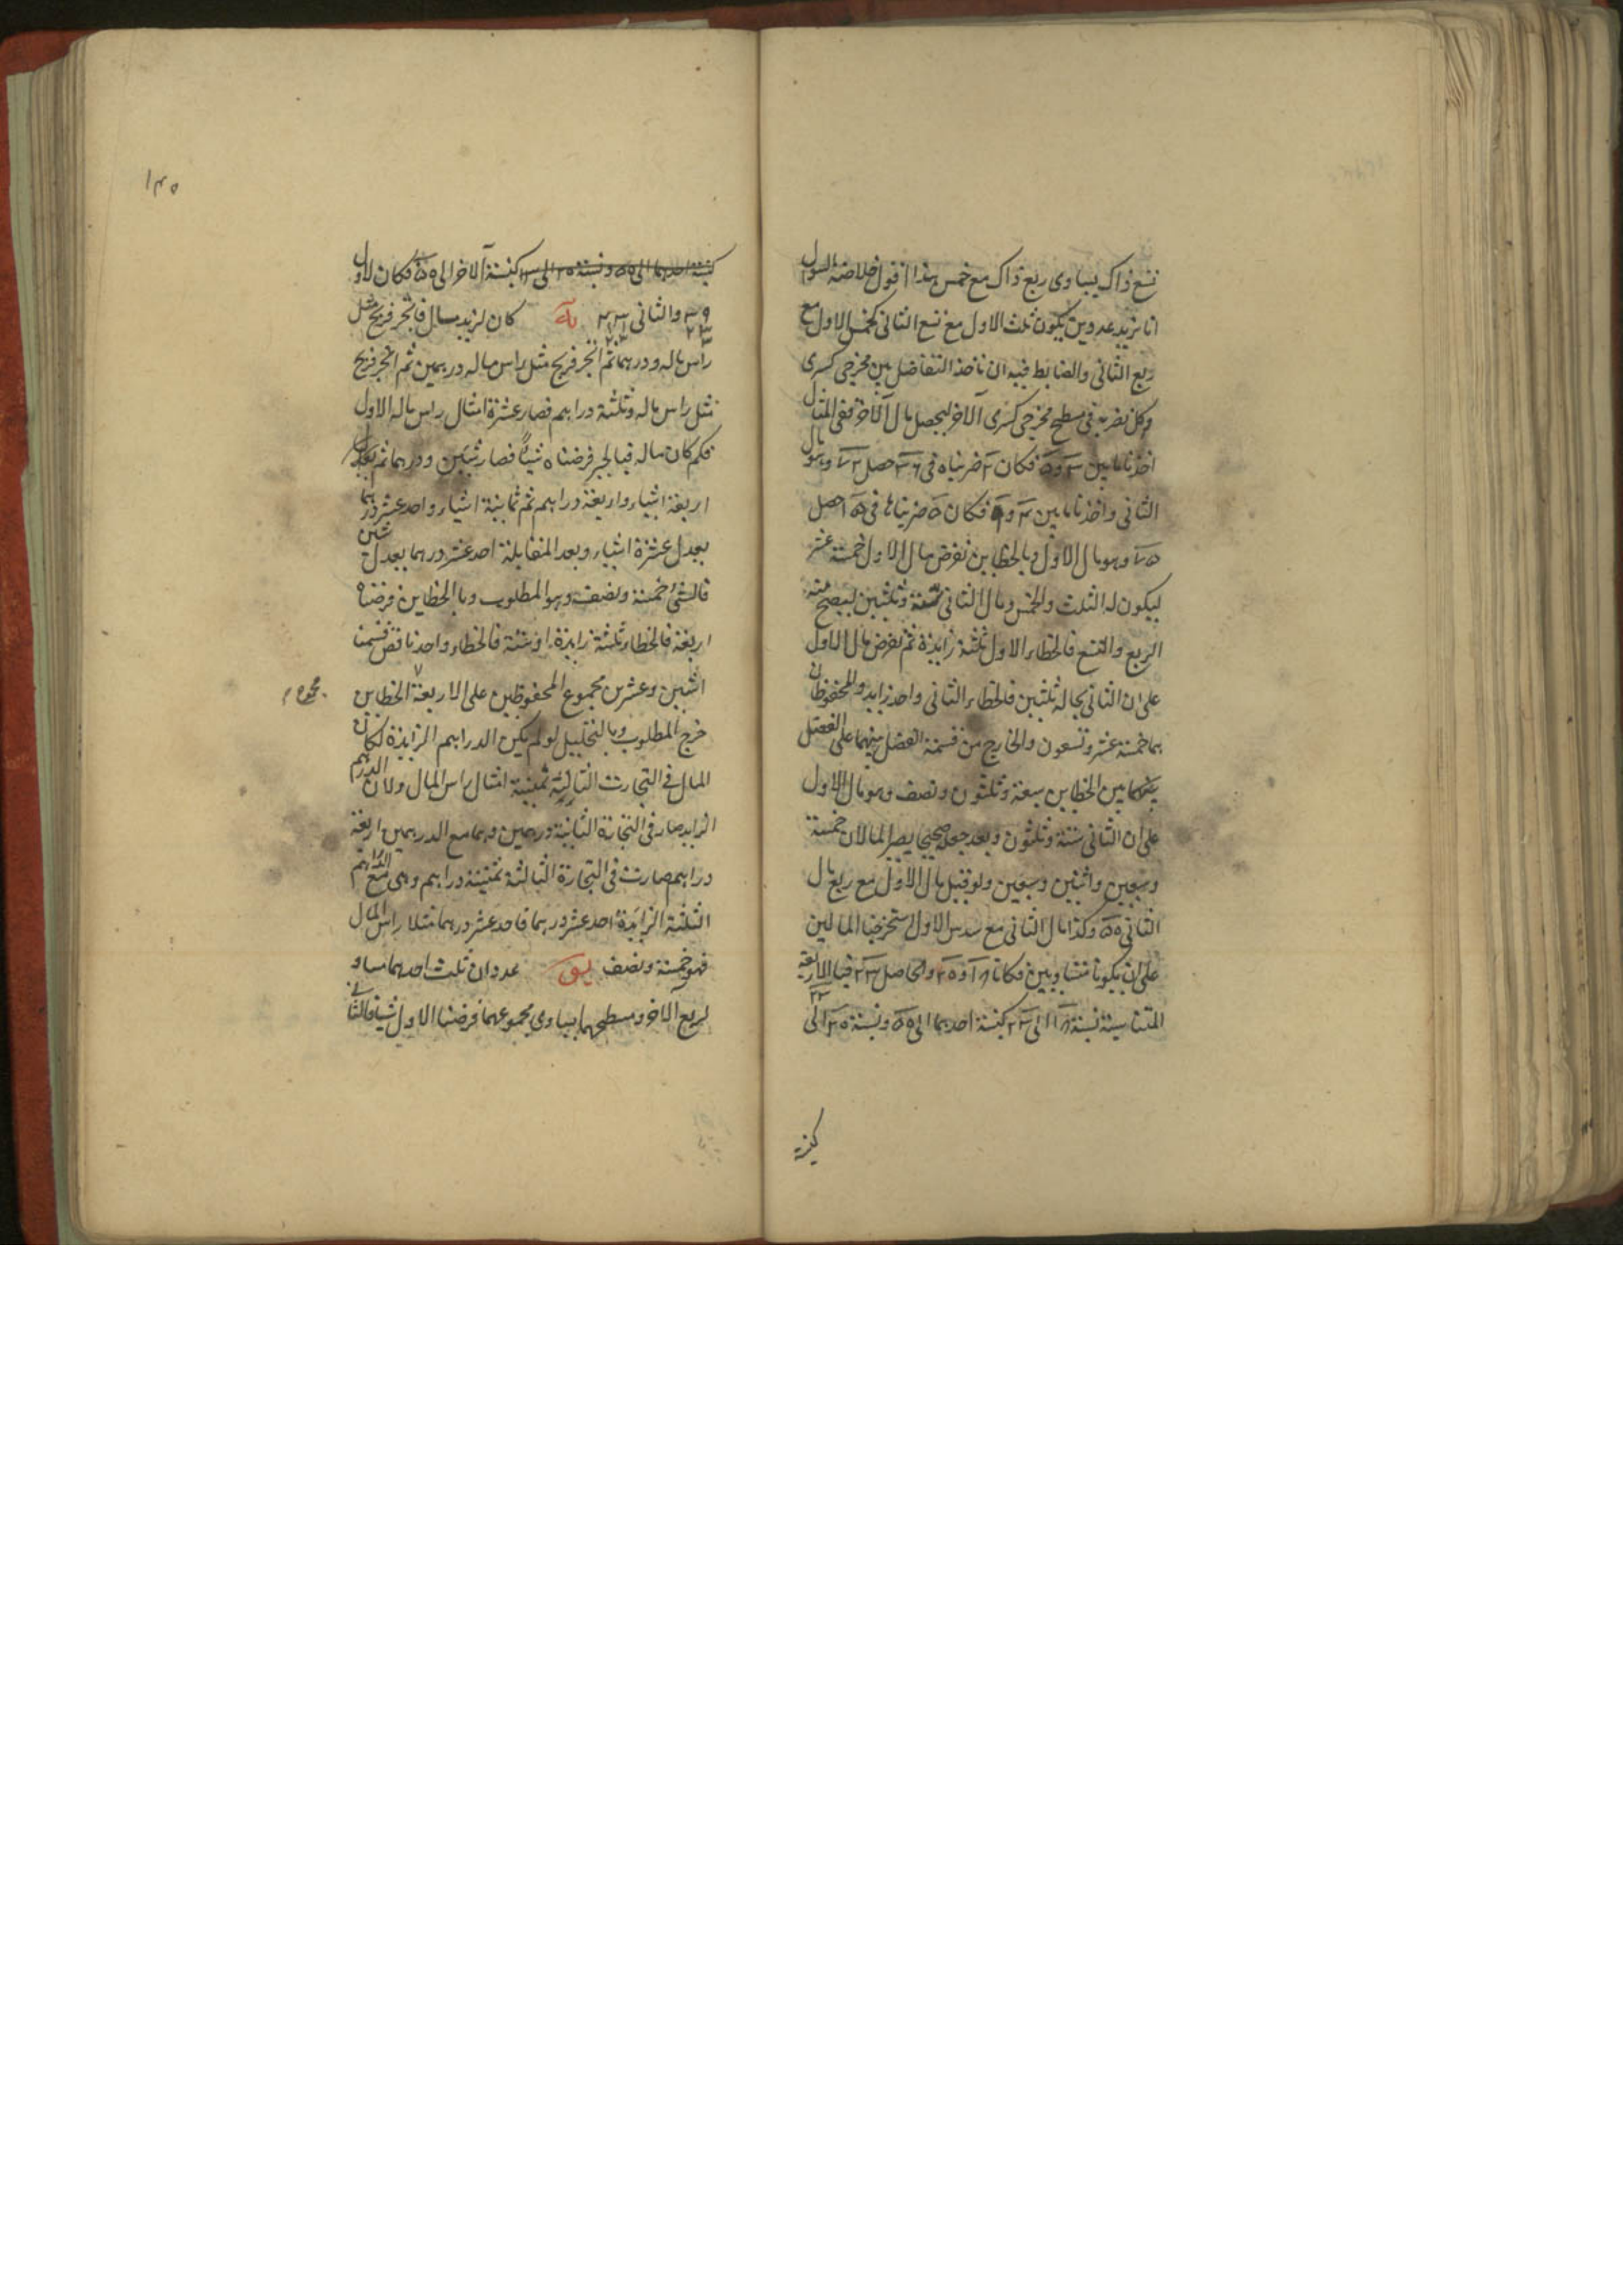 تسع ذاك يساوى ربع ذاك مع خمس هذا اقول خلاصة السوال
انا نريد عددين يكون ثلث الاول مع تسع الثانى كخمس الاول مع
ربع الثانى والضابط فيه ان ناخذ التفاضل بين مخرجى كسرى
وكل نضربه فى مسطح مخرجى كسرى الآخر ليحصل مال الآخر ففى المثال
اخذنا ما بين ٣ و ٥ فكان ٢ ضربناه فى ٣٦ حصل ٧٢ وهو مال
الثانى واخذنا ما بين ٤ و ٩ فكان ٥ ضربناها فى ١٥ حصل
٧٥ وهو مال الاول وبالخطاين نفرض مال الاول خمسة عشر
ليكون له الثلث والخمس ومال الثانى ستة وثلثين ليصح منه
الربع والتسع فالخطاء الاول ثلثة زايدة ثم نفرض مال الاول
على ان الثانى بحاله ثلثين فالخطاء الثانى واحد زايد والمحفوظان
هما خمسة عشر وتسعون والخارج من قسمة الفضل بينهما على الفضل
بين الخطاين سبعة وثلثون ونصف وهو مال الاول
على ان الثانى ستة وثلثون وبعد جعله صحيحا يصير المالان خمسة
وسبعين واثنين وسبعين ولو قيل مال الاول مع ربع مال
الثانى ٥٥ وكذا مال الثانى مع سدس الاول استخرجنا المالين
على ان يكونا متساويين فكانا ١٨ و ٢٠ والحاصل ٢٣ فبالاربعة
المتناسبة نسبة ١٨ الى ٢٣ كنسبة احدهما الى ٥٥ ونسبة ٢٠ الى
٢٣
كنسبة
١٣٥
كنسبة احدهما الى ٥٥ ونسبة ٢٠ الى ٢٣ كنسبة الآخر الى ٥٥ فكان الاول
والثانى كان لزيد مال فاتجر فربح مثل
راس ماله ودرهما ثم اتجر فربح مثل راس ماله ودرهمين ثم اتجر فربح
مثل راس ماله وثلثة دراهم فصار عشرة امثال راس ماله الاول
فكم كان ماله فبالجبر فرضناه شيئا فصار شيئين ودرهما ثم
اربعة اشياء واربعة دراهم ثم ثمانية اشياء واحد عشر درهما
يعدل عشرة اشياء وبعد المقابلة احد عشر درهما يعدل شيئين
فالشئ خمسة ونصف وهو المطلوب وبالخطاين فرضناه
اربعة فالخطاء ثلثة زايدة او ستة فالخطاء واحد ناقص قسمنا
اثنين وعشرين مجموع المحفوظين على الاربعة الخطاين
مجموع
خرج المطلوب وبالتحليل لو لم يكن الدراهم الزايدة لكان
المال فى التجارت الثالثة ثمنية امثال راس المال ولان الدرهم
الزايد صار فى التجارة الثانية درهمين وهما مع الدرهمين اربعة
دراهم صارت فى التجارة الثالثة ثمنية دراهم وهى مع الدراهم
الثلثة الزايدة احد عشر درهما فاحد عشر درهما مثلا راس المال
فهو خمسة ونصف عددان ثلث احدهما مساو
لربع الآخر ومسطحهما يساوى مجموعهما فرضنا الاول شيئا فالثانى